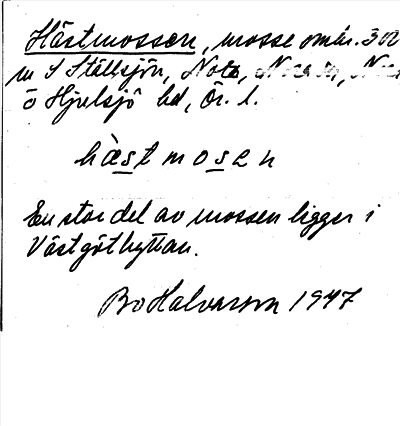 Hästmossen, mosse omkr. 300
m S Ställsjön, Nora,
ö Hjulsjö hd, Ör. l.
hæ̀stmosen
En stor del av mossen ligger i
Västgöthyttan.
Bo Halvarson 1947